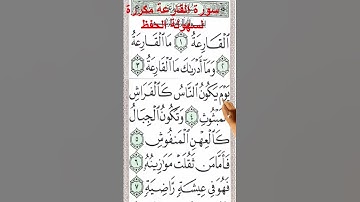 سورة القارعة مكررة
لسهولة الحفظ
ٱلْقَارِعَةُ ١ مَا ٱلْقَارِعَةُ
٢ وَمَآ أَدْرَىٰكَ مَا ٱلْقَارِعَةُ ٣
يَوْمَ يَكُونُ ٱلنَّاسُ كَٱلْفَرَاشِ
ٱلْمَبْثُوثِ ٤ وَتَكُونُ ٱلْجِبَالُ
كَٱلْعِهْنِ ٱلْمَنفُوشِ ٥
فَأَمَّا مَن ثَقُلَتْ مَوَٰزِينُهُۥ ٦
فَهُوَ فِى عِيشَةٍ رَّاضِيَةٍ ٧